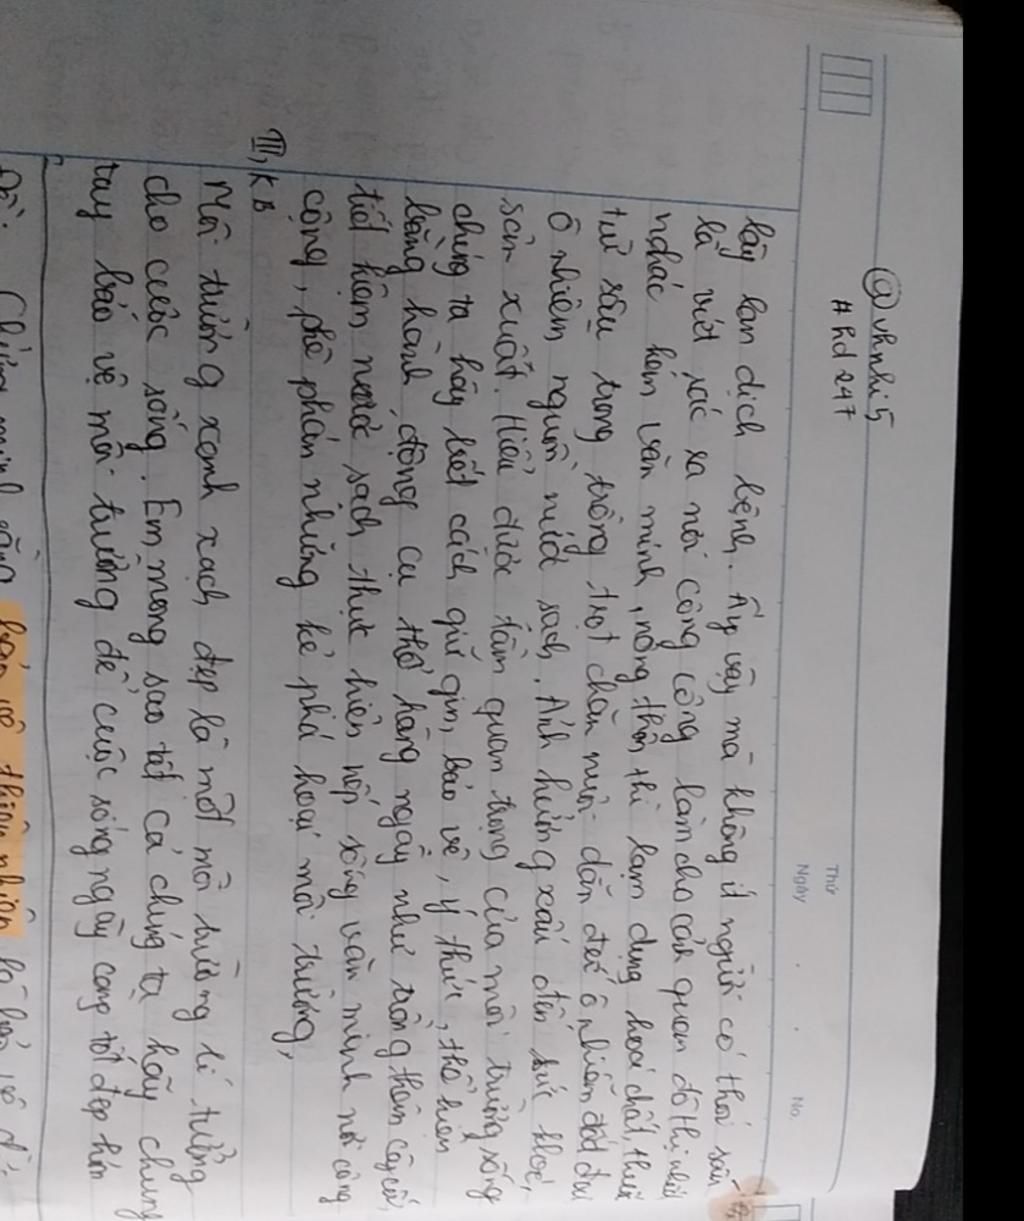 @vhnhi5
#hd247
Thứ
Ngày . . No.
lây lan dịch bệnh. Ấy vậy mà không ít người có thói xấu
là vứt rác ra nơi công cộng làm cho cảnh quan đô thị nhếch
nhác kém văn minh, nông thôn thì lạm dụng hoá chất, thuốc
trừ sâu trong trồng trọt chăn nuôi dẫn đến ô nhiễm đất đai
ô nhiễm nguồn nước sạch. Ảnh hưởng xấu đến sức khoẻ,
sản xuất. Hiểu được tầm quan trọng của môi trường sống
chúng ta hãy biết cách giữ gìn, bảo vệ, ý thức, thể hiện
bằng hành động cụ thể hàng ngày như trồng thêm cây cối,
tiết kiệm nước sạch thực hiện nếp sống văn minh nơi công
cộng, phê phán những kẻ phá hoại môi trường,
III, KB
Môi trường xanh sạch đẹp là một môi trường lí tưởng
cho cuộc sống. Em mong sao tất cả chúng ta hãy chung
tay bảo vệ môi trường để cuộc sống ngày càng tốt đẹp hơn
Đề: Chứng minh rằng bảo vệ thiên nhiên là bảo vệ